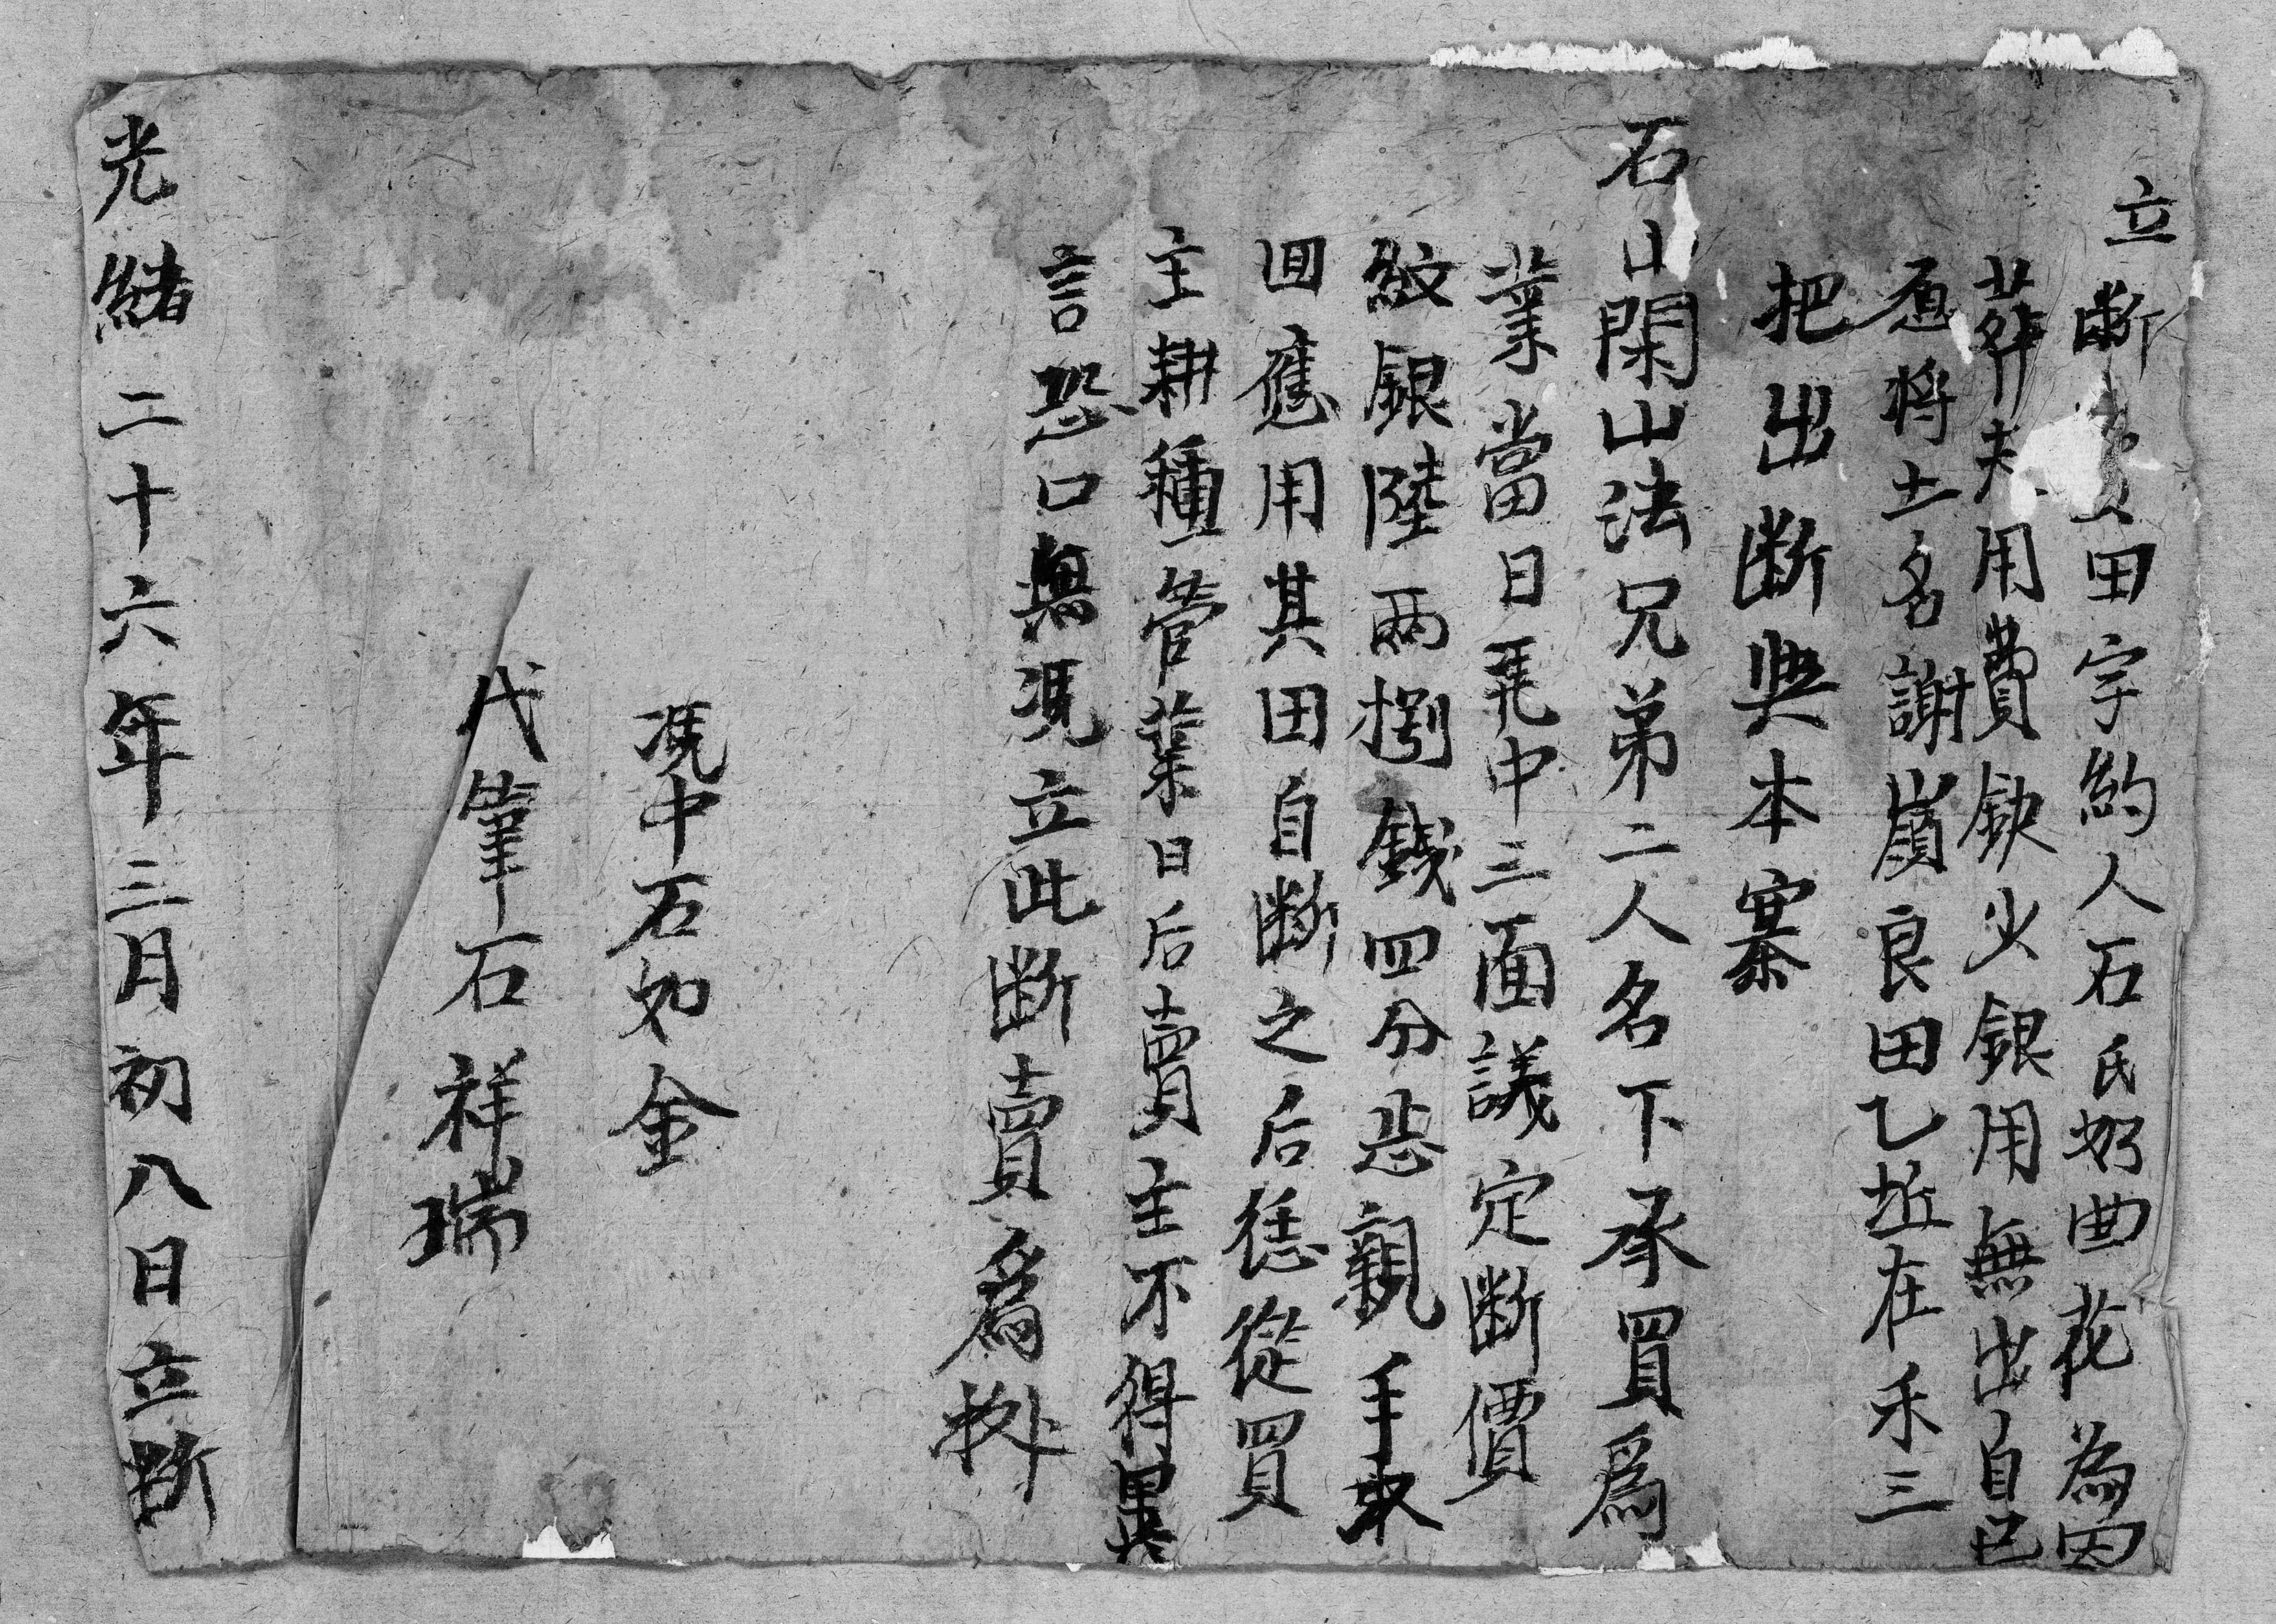 立斷賣田字約人石氏奶曲花為因
葬夫用費缺少銀用無出自己
愿将土名謝嵿良田乙坵在禾三
把出断與本寨
石山閑山法兄弟二人名下承買為
業當日凭中三面議定断價
紋銀陸兩捌錢四分悉親手收
回應用其田自断之后恁從買
主耕種管業日后賣主不得異
言恐口無凴立此断賣為㨿
凴中石如金
代筆石祥瑞
光緒二十六年三月初八日立断